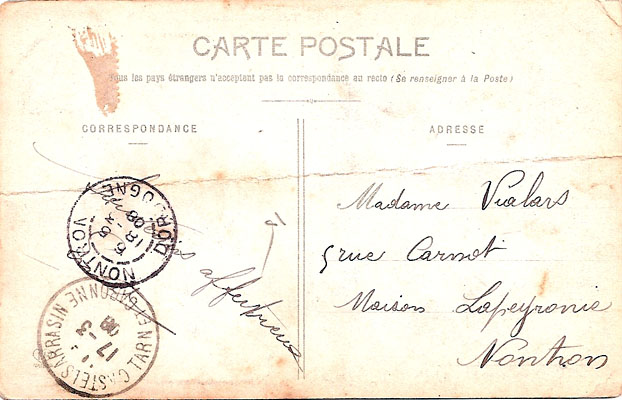 CARTE POSTALE
Tous les pays étrangers n'acceptent pas la correspondance au recto (Se renseigner à la Poste)
CORRESPONDANCE
ADRESSE
affectueux
Madame Vialars
5 rue Carnot
Maison Lapeyronie
Nontron
NONTRON DORDOGNE
18-35
6
08
CASTELSARRASIN TARN ET GARONNE
17-3